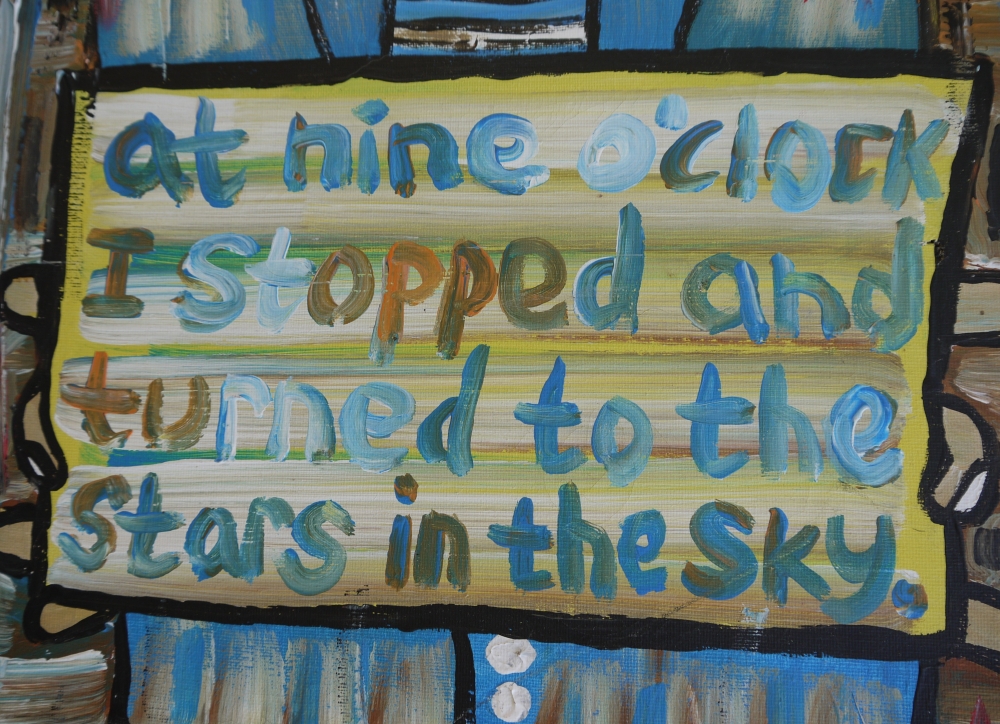 at nine o'clock
I stopped and
turned to the
stars in the sky.